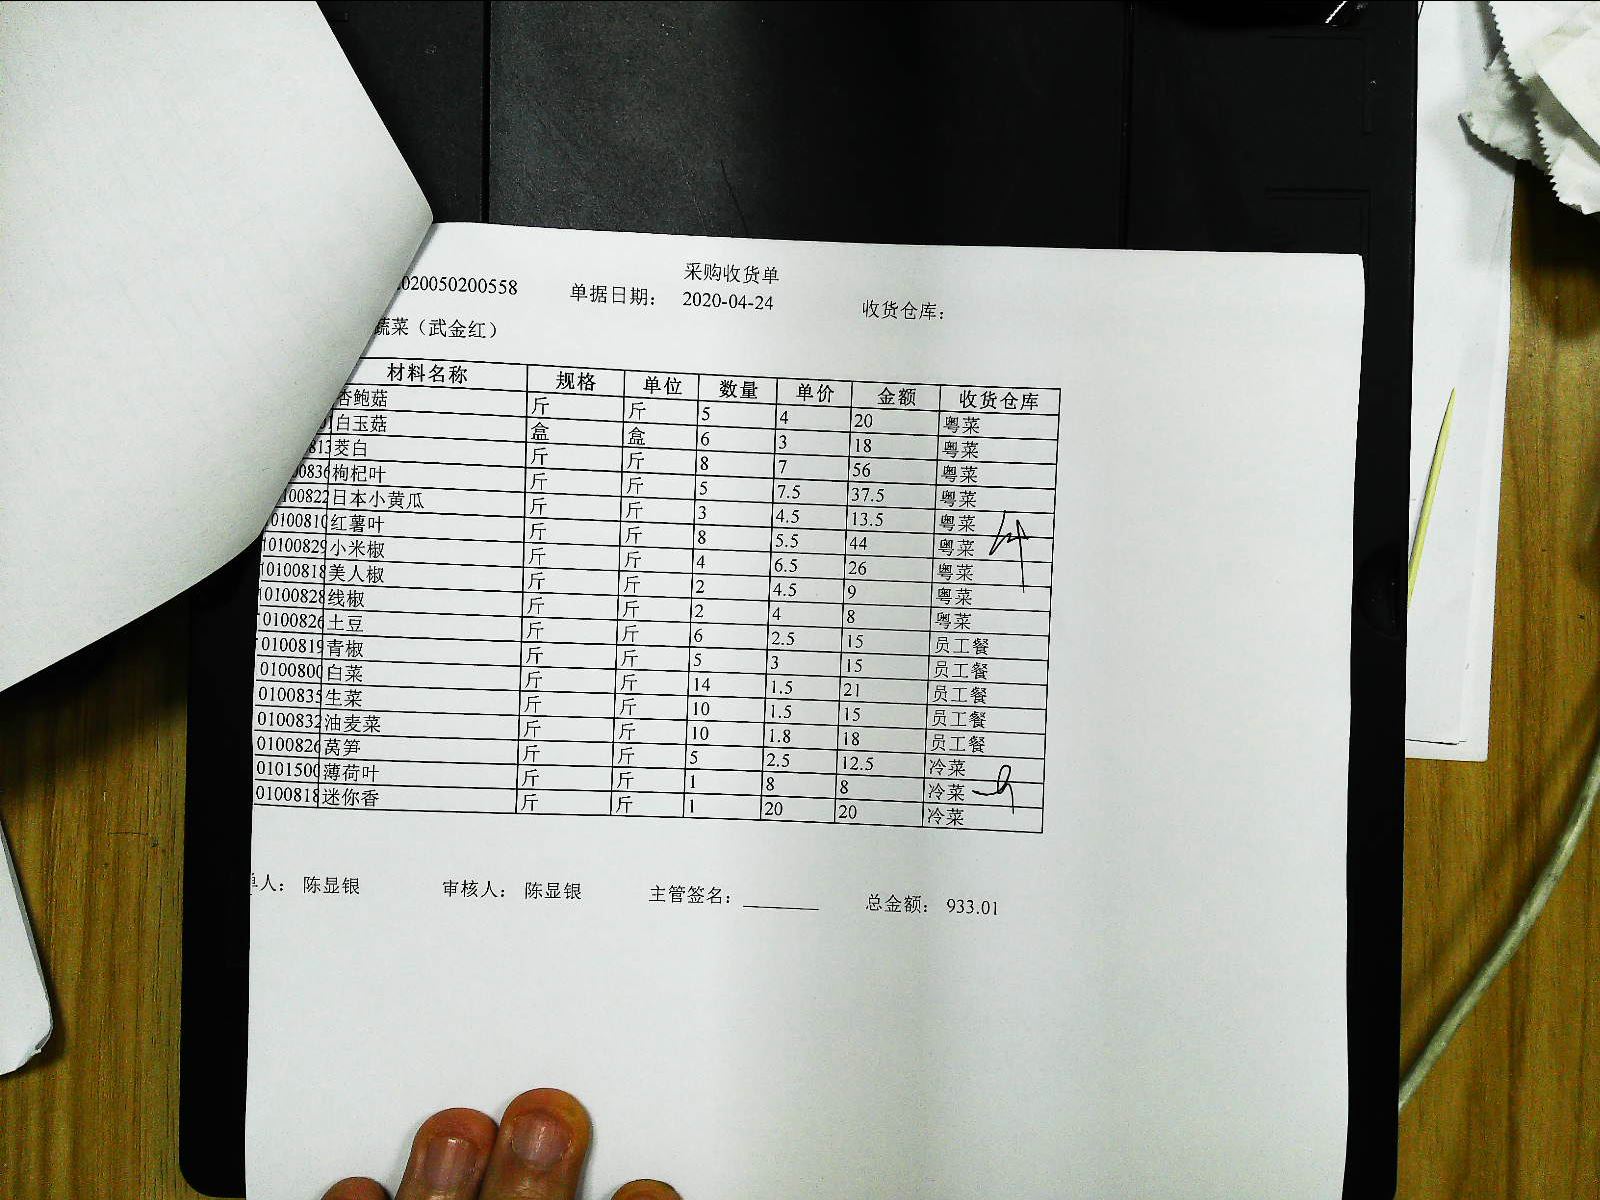 采购收货单
020050200558 单据日期： 2020-04-24 收货仓库：
蔬菜（武金红）
材料名称 规格 单位 数量 单价 金额 收货仓库
杏鲍菇 斤 斤 5 4 20 粤菜
白玉菇 盒 盒 6 3 18 粤菜
813 茭白 斤 斤 8 7 56 粤菜
00836 枸杞叶 斤 斤 5 7.5 37.5 粤菜
100822 日本小黄瓜 斤 斤 3 4.5 13.5 粤菜
0100810 红薯叶 斤 斤 8 5.5 44 粤菜
0100829 小米椒 斤 斤 4 6.5 26 粤菜
0100818 美人椒 斤 斤 2 4.5 9 粤菜
0100828 线椒 斤 斤 2 4 8 粤菜
0100826 土豆 斤 斤 6 2.5 15 员工餐
0100819 青椒 斤 斤 5 3 15 员工餐
0100800 白菜 斤 斤 14 1.5 21 员工餐
0100835 生菜 斤 斤 10 1.5 15 员工餐
0100832 油麦菜 斤 斤 10 1.8 18 员工餐
0100826 莴笋 斤 斤 5 2.5 12.5 冷菜
0101500 薄荷叶 斤 斤 1 8 8 冷菜
0100818 迷你香 斤 斤 1 20 20 冷菜
单人： 陈显银 审核人： 陈显银 主管签名： 总金额： 933.01